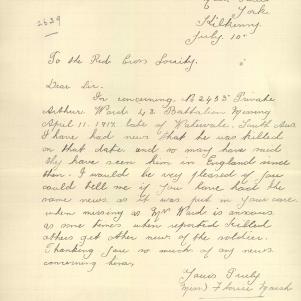 Yorke
2629
Kilkenny
July 10th
To the Red Cross Society.
Dear Sir.
In concerning No 2455 Private
Arthur Ward 48 Battalion Missing
April 11. 1917. late of Watervale. South Aus
I have had news that he was killed
on that date. and so many have said
they have seen him in England since
then. I would be very pleased if you
could tell me if you have had the
same news as it was put in your care.
when missing as Mrs Ward is anxious
as some times when reported killed
others get other news of the soldier.
Thanking you so much of any news
concerning him,
Yours Truly
Florrie Marsh